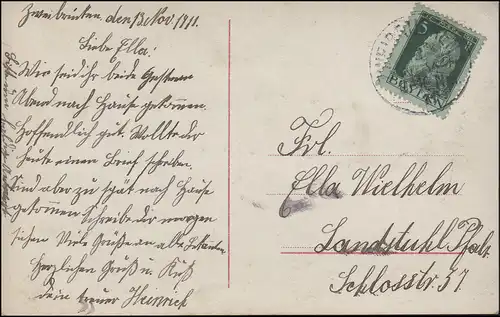 Zweibrücken, den 13 Nov 1911.
Liebe Ella!
Wie seid ihr beide Gestern
Abend nach Hause gekommen.
Hoffendlich gut. Wollte dir
heute einen Brief schreiben.
Sind aber zu spät nach Hause
gekommen Schreibe dir morgen
sicher. Viele Grüße an alle Bekannten
Herzlichen Gruß u. Kuß
dein treuer Heinrich
5
BAYERN
Frl.
Ella Wielhelm
Landstuhl Pfalz.
Schlosstr. 37